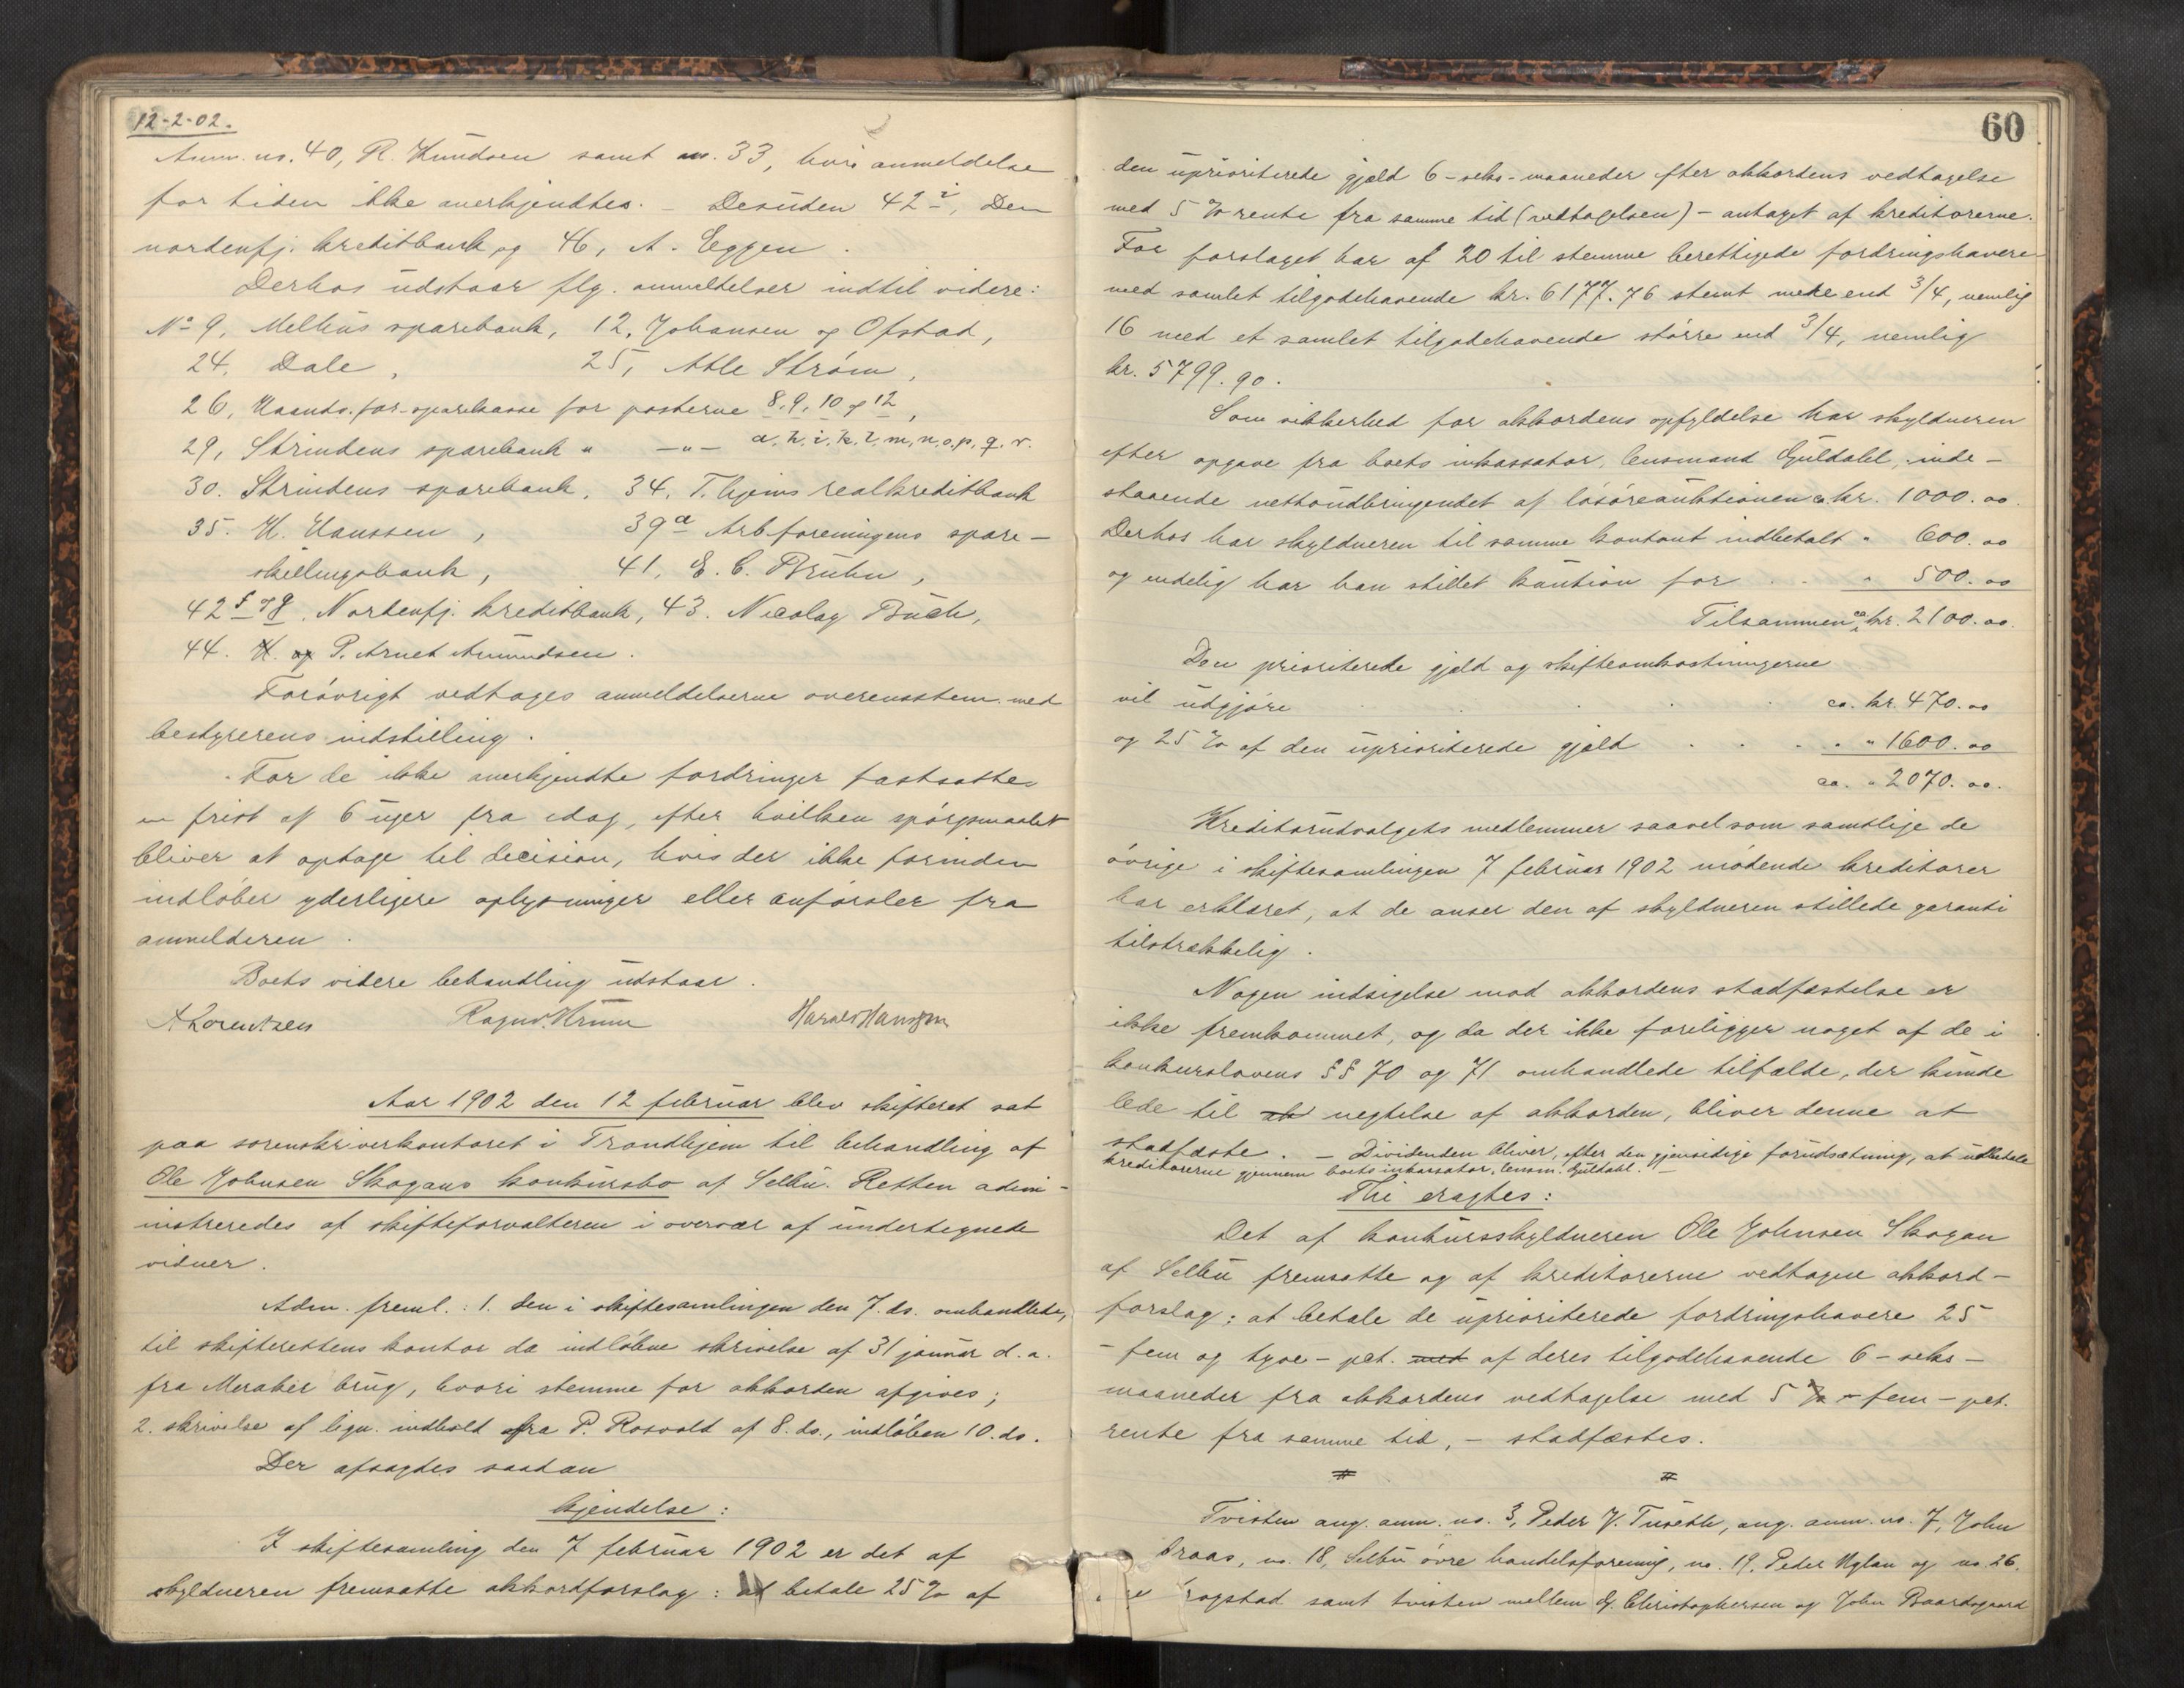 12-2-02.
Anm. no. 40, R. Knudsen samt no. 33, hvis anmeldelse
for tiden ikke anerkjendtes. – Desuden 42 i, Den
nordenfj. kreditbank og 46, A. Eggen.
Derhos udstaar flg. anmeldelser indtil videre:
No 9, Melhus sparebank, 12, Johansen og Ofstad,
24. Dale, 25, Atle Strøm,
26, Haandv. for. sparekasse for posterne 8, 9, 10 og 12,
29, Strindens sparebank " —"— a. h. i. k. l. m, n. o. p. q. r.
30. Strindens sparebank, 34, T.hjems realkreditbank
35. H. Hanssen, 39 a Arb.foreningens spare-
skillingsbank, 41, E. C. Bruhn,
42 f og g. Nordenfj. kreditbank, 43. Nicolay Buch,
44. H. og P. Arnet Amundsen.
Forøvrigt vedtages anmeldelserne overensstem. med
bestyrerens indstilling.
For de ikke anerkjendte fordringer fastsattes
en frist af 6 uger fra idag, efter hvilken spørgsmaalet
bliver at optage til decision, hvis der ikke forinden
indløber yderligere oplysninger eller anførsler fra
anmelderen.
Boets videre behandling udstaar.
A Lorentzen Ragnv. Krum Harald Hanssen
Aar 1902 den 12 februar blev skifteret sat
paa sorenskriverkontoret i Trondhjem til behandling af
Ole Johnsen Skogans konkursbo af Selbu. Retten admi-
nistreredes af skifteforvalteren i overvær af undertegnede
vidner.
Adm. freml.: 1. den i skiftesamlingen den 7. ds. omhandlede,
til skifterettens kontor da indløbne skrivelse af 31 januar d. a.
fra Meraker brug, hvori stemme for akkorden afgives;
2. skrivelse af lign. indhold fra P. Rosvold af 8. ds., indløben 10. ds.
Der afsagdes saadan
kjendelse:
I skiftesamling den 7 februar 1902 er det af
skyldneren fremsatte akkordforslag: at betale 25 % af
60
den uprioriterede gjæld 6 - seks - maaneder efter akkordens vedtagelse
med 5 % rente fra samme tid (vedtagelsen) – antaget af kreditorerne.
For forslaget har af 20 til stemme berettigede fordringshavere
med samlet tilgodehavende kr. 6177.76 stemt mere end 3/4, nemlig
16 med et samlet tilgodehavende større end 3/4, nemlig
kr. 5799.90.
Som sikkerhed for akkordens opfyldelse har skyldneren
efter opgave fra boets inkassator, lensmand Guldahl, inde-
staaende nettoudbringendet af løsøreauktionen ca. kr. 1000.00.
Derhos har skyldneren til samme kontant indbetalt " 600.00
og endelig har han stillet kaution for . . " 500.00
Tilsammen ca kr. 2100.00.
Den prioriterede gjæld og skifteomkostningerne
vil udgjøre . . . . . ca. kr. 470.00
og 25 % af den uprioriterede gjæld . . . . " 1600.00
ca. " 2070.00.
Kreditorudvalgets medlemmer saavelsom samtlige de
øvrige i skiftesamlingen 7 februar 1902 mødende kreditorer
har erklæret, at de anser den af skyldneren stillede garanti
tilstrækkelig.
Nogen indsigelse mod akkordens stadfæstelse er
ikke fremkommet, og da der ikke foreligger noget af de i
konkurslovens §§ 70 og 71 omhandlede tilfælde, der kunde
lede til negtelse af akkorden, bliver denne at
stadfæste. – Dividenden bliver, efter den gjensidige forudsætning, at udbetale
kreditorerne gjennem boets inkassator, lensm. Guldahl. –
Thi eragtes:
Det af konkursskyldneren Ole Johnsen Skogan
af Selbu fremsatte og af kreditorerne vedtagne akkord-
forslag: at betale de uprioriterede fordringshavere 25
- fem og tyve - pct. med af deres tilgodehavende 6 - seks -
maaneder fra akkordens vedtagelse med 5 % - fem - pct.
rente fra samme tid, – stadfæstes.
# #
Tvisten ang. anm. no. 3, Peder J. Tuseth, ang. anm. no. 7, John
Braas, no. 18, Selbu øvre handelsforening, no. 19, Peder Uglan og no. 26.
rogstad samt tvisten mellem G. Christophersen og John Baardsgaard